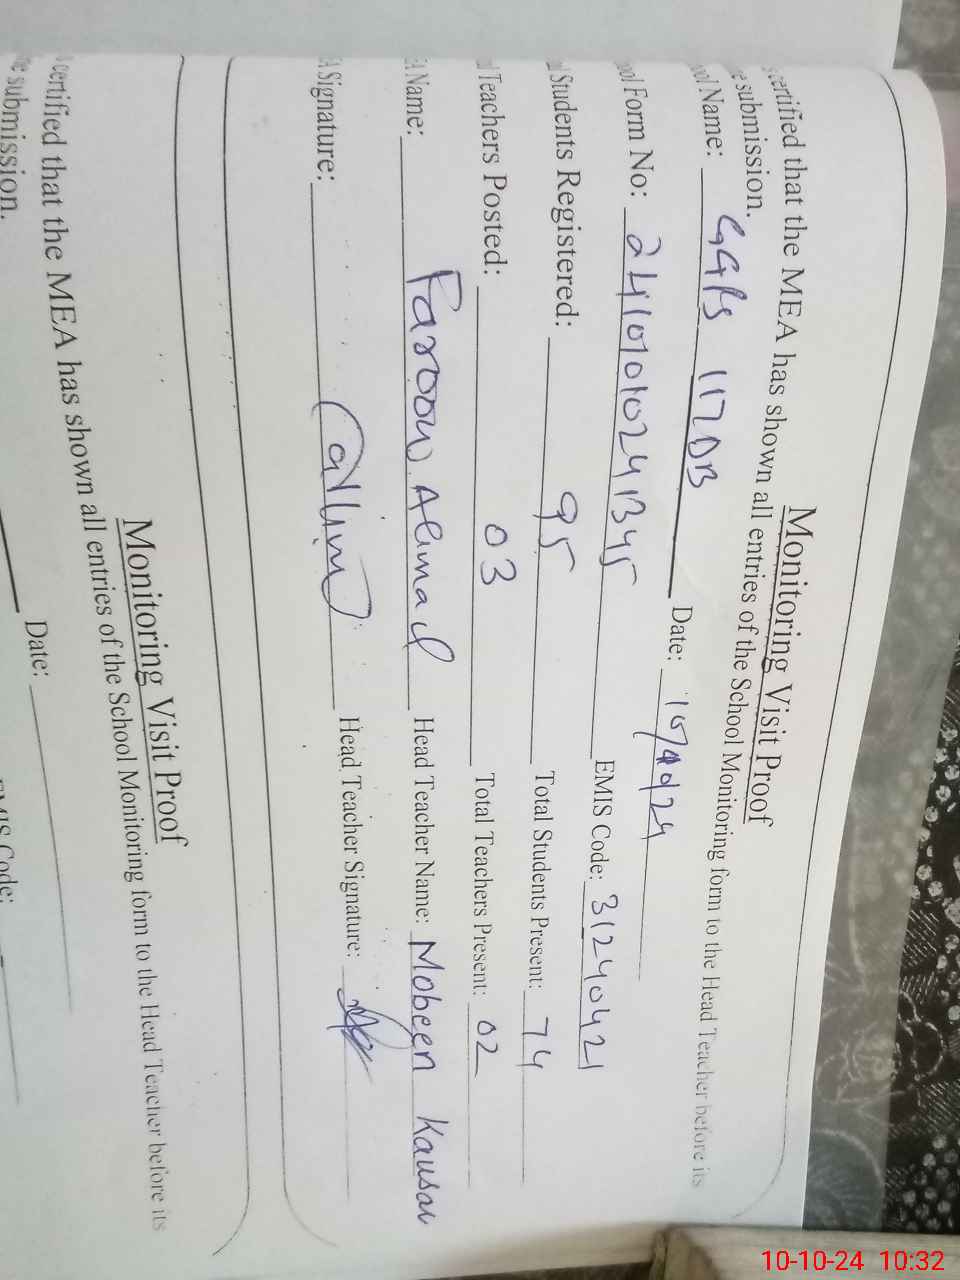 Monitoring Visit Proof
certified that the MEA has shown all entries of the School Monitoring form to the Head Teacher before its
e submission.
ool Name: GGPS 117DB Date:
ool Form No: EMIS Code: 31240421
al Students Registered: 95 Total Students Present: 74
al Teachers Posted: 03 Total Teachers Present: 02
EA Name: Farooq Ahmad Head Teacher Name: Mobeen Kausar
EA Signature: Head Teacher Signature:
Monitoring Visit Proof
certified that the MEA has shown all entries of the School Monitoring form to the Head Teacher before its
e submission.
Date:
EMIS Code:
10-10-24 10:32